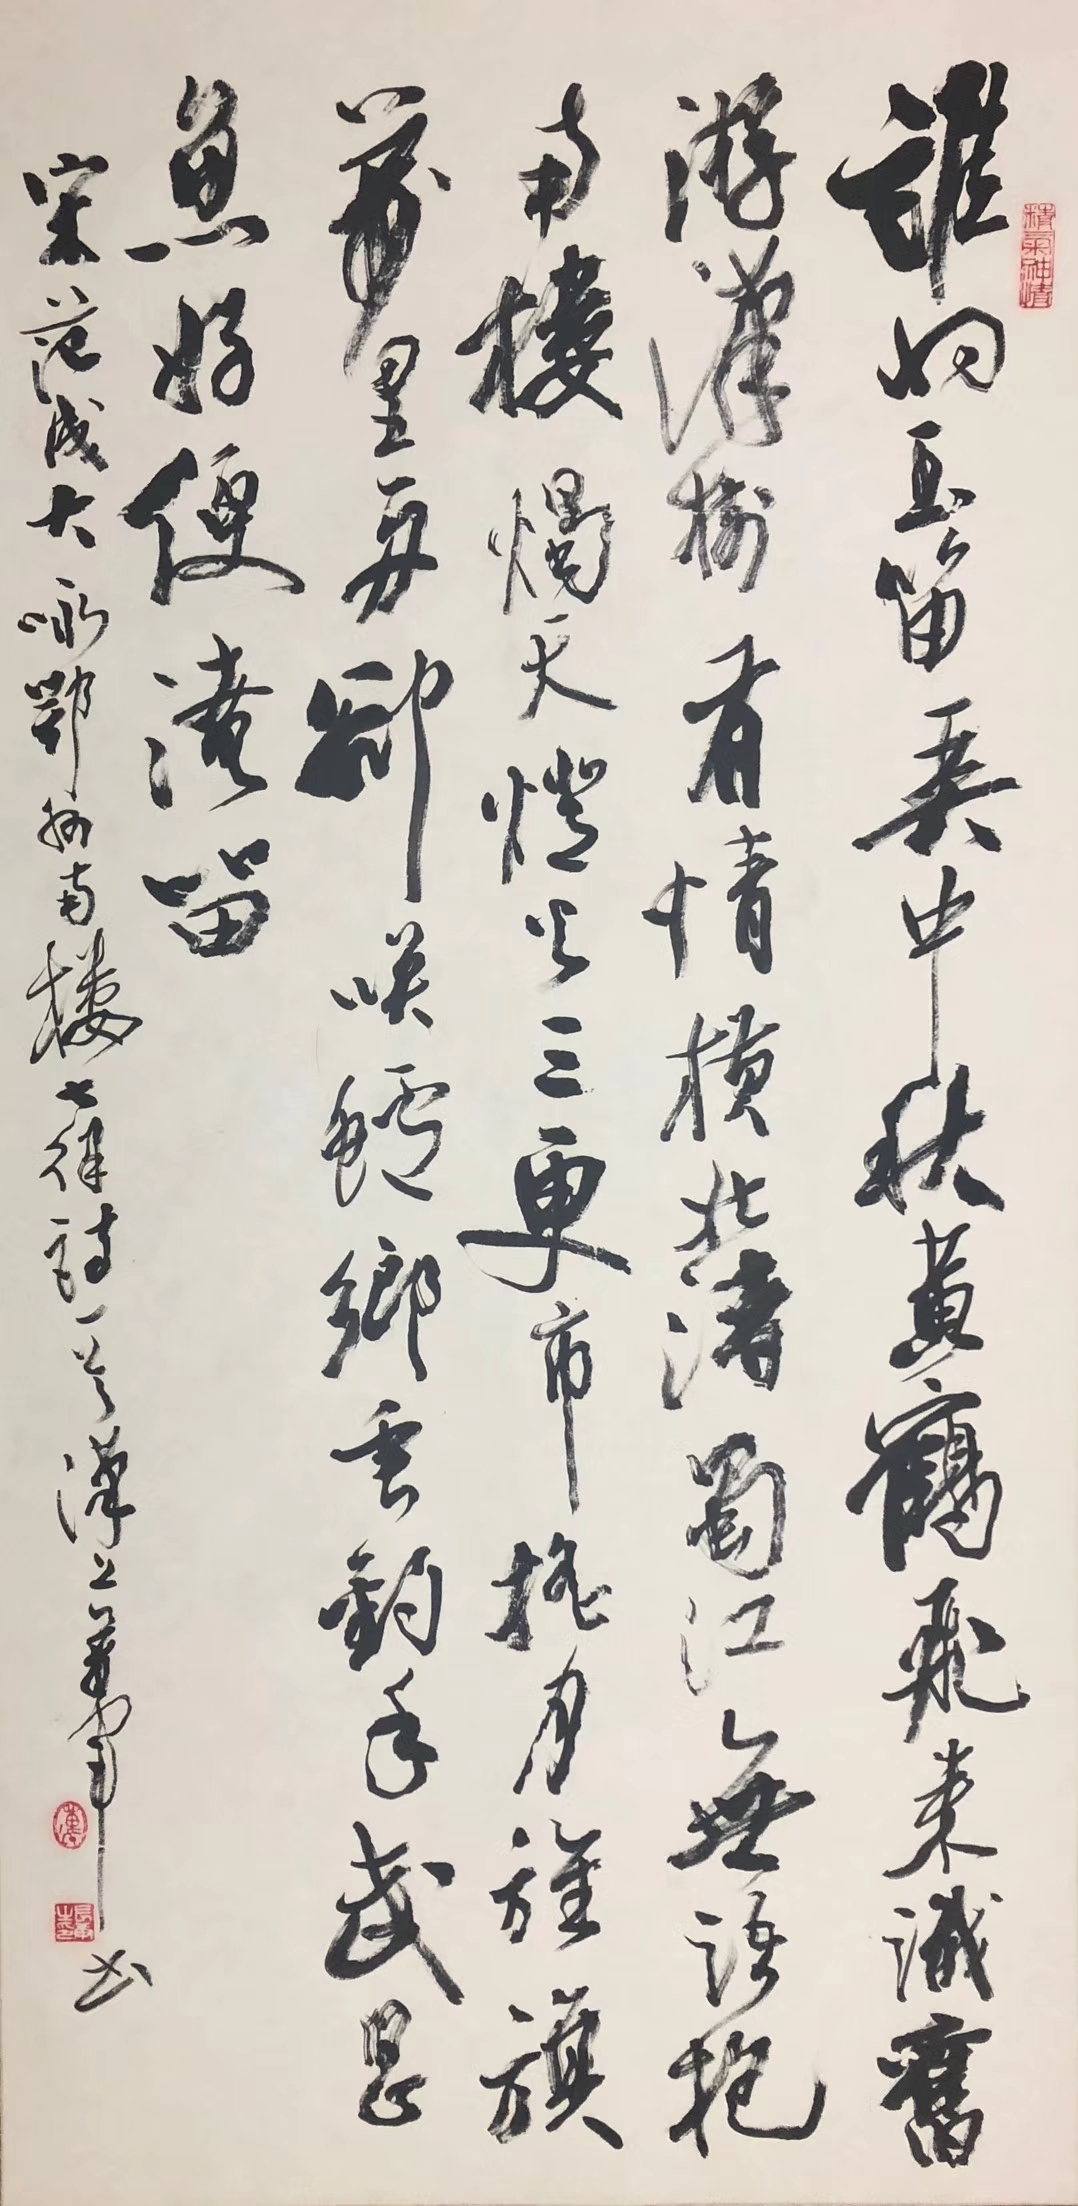 精氣神情
誰將玉笛弄中秋黃鶴飛來識舊
游漢樹有情橫北渚蜀江無語抱
南樓燭天燈火三更市搖月旌旗
萬里舟卻笑鱸鄉垂釣手武昌
魚好便淹留
宋范成大咏鄂州南樓七律詩一首漢上書